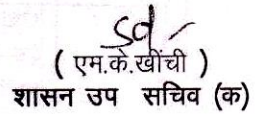 Sd/-
( एम.के.खींची )
शासन उप सचिव (क)